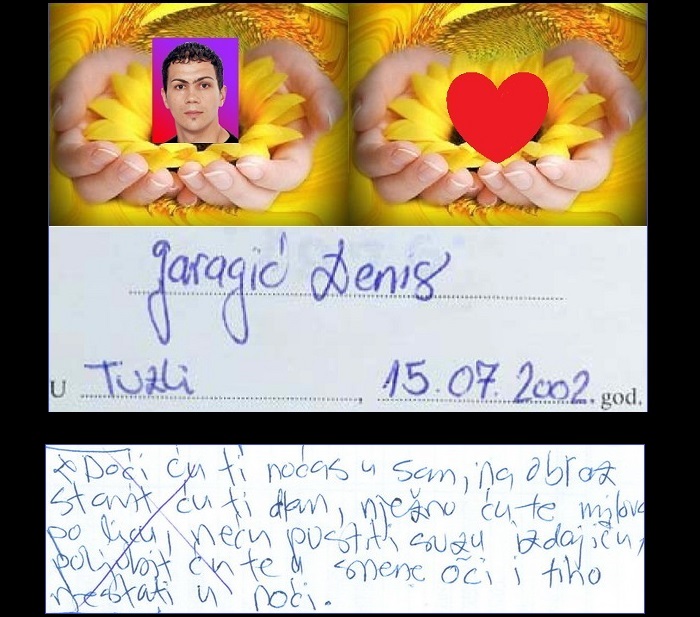 garagić Denis
U Tuzli, 15.07.2002. god.
Doći ću ti noćas u san, na obraz
stavit ću ti dlan, nježno ću te milova
po licu, neću pustiti suzu izdajicu,
poljubit ću te u snene oči i tiho
nestati u noći.